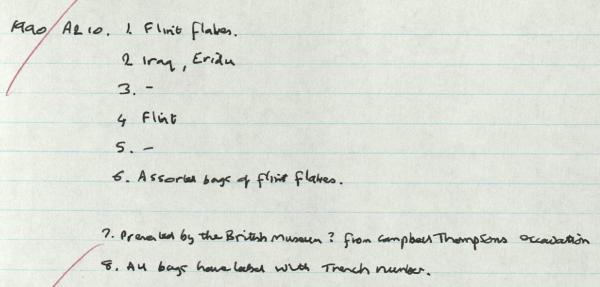 1990 A210. 1. Flint flakes.
2 Iraq, Eridu
3. -
4 Flint
5. -
6. Assorted bags of flint flakes.
7. Presented by the British Museum? from Campbell Thompsons excavation
8. All bags have label with Trench number.